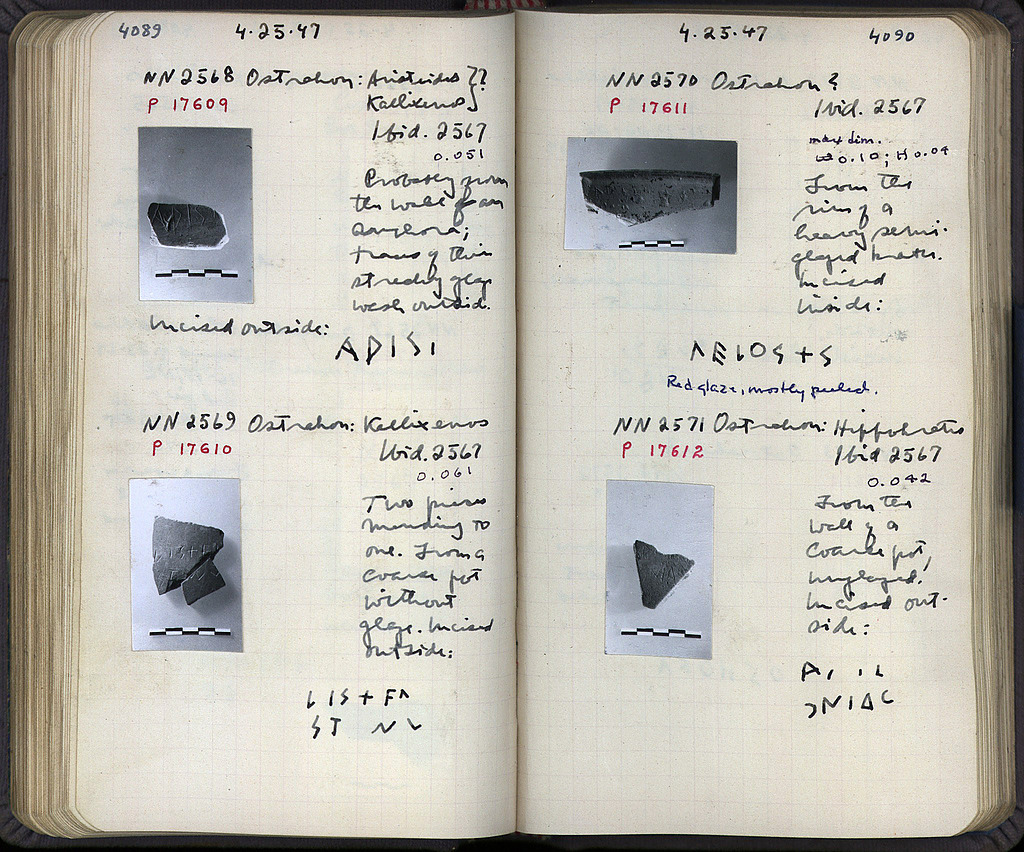 4089 4.25.47
NN 2568 Ostrakon: Aristeides }??
P 17609 Kallixenos }
Ibid. 2567
0.051
Probably from
the wall of an
amphora;
traces of thin
streaky glaze
wash outside.
Incised outside:
ADISI
NN 2569 Ostrakon: Kallixenos
P 17610 Ibid. 2567
0.061
Two pieces
mending to
one. From a
coarse pot
without
glaze. Incised
outside:
LIS+FA
ST NL
4.25.47 4090
NN 2570 Ostrakon?
P 17611 Ibid. 2567
max dim.
0.10; H 0.04
From the
rim of a
heavy semi-
glazed krater.
Incised
inside:
ΛEIOS+S
Red glaze, mostly peeled.
NN 2571 Ostrakon: Hippokrates
P 17612 Ibid 2567
0.042
From the
wall of a
coarse pot,
unglazed.
Incised out-
side: